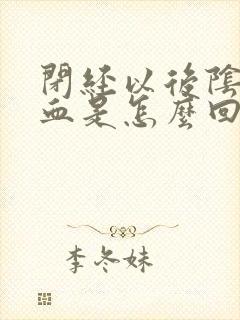 閉經以後陰
血是怎麼回
李冬妹